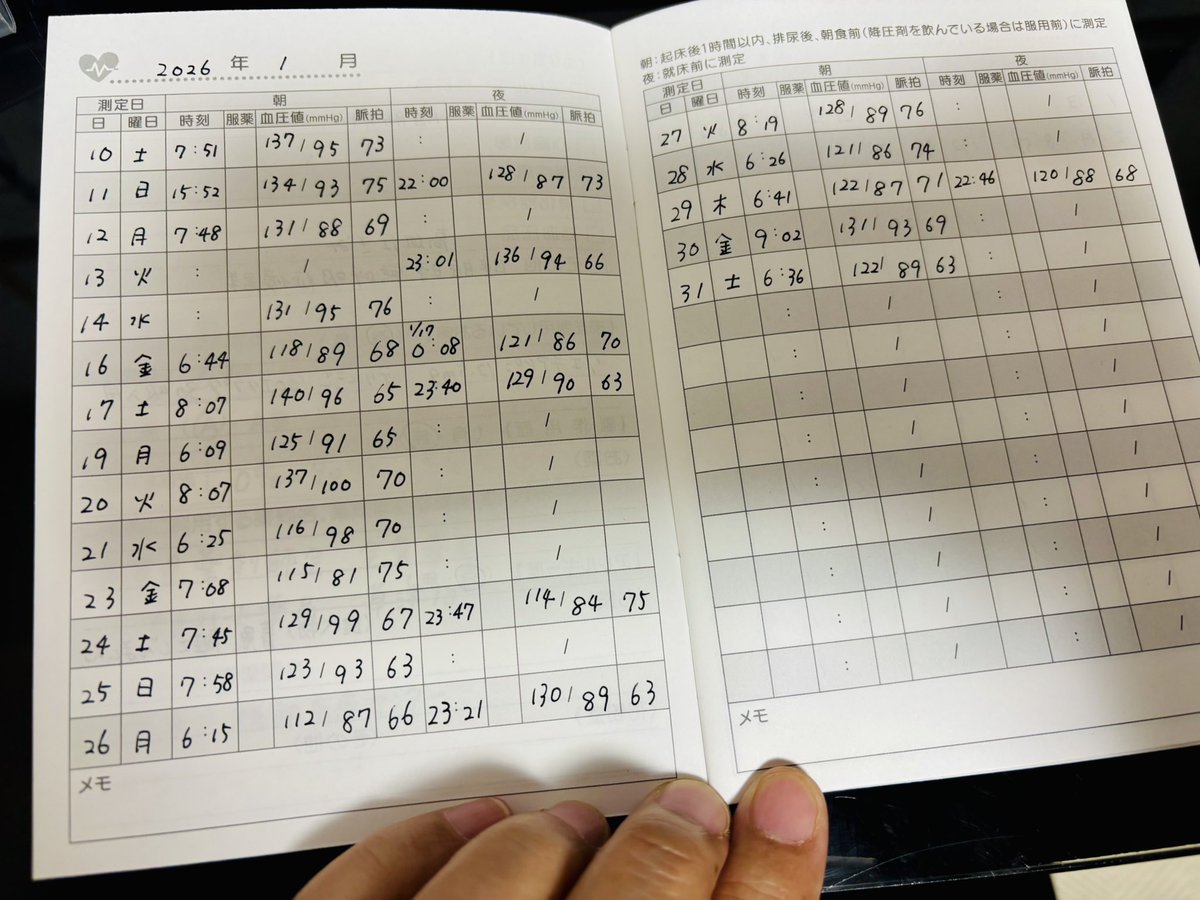 2026 年 1 月
測定日 朝 夜
日 曜日 時刻 服薬 血圧値(mmHg) 脈拍 時刻 服薬 血圧値(mmHg) 脈拍
10 土 7:51 137/95 73 : /
11 日 15:52 134/93 75 22:00 128/87 73
12 月 7:48 131/88 69 : /
13 火 : / 23:01 136/94 66
14 水 : 131/95 76 : /
16 金 6:44 118/89 68 1/17 0:08 121/86 70
17 土 8:07 140/96 65 23:40 129/90 63
19 月 6:09 125/91 65 : /
20 火 8:07 137/100 70 : /
21 水 6:25 116/98 70 : /
23 金 7:08 115/81 75 : /
24 土 7:45 129/99 67 23:47 114/84 75
25 日 7:58 123/93 63 : /
26 月 6:15 112/87 66 23:21 130/89 63
メモ
朝:起床後1時間以内、排尿後、朝食前(降圧剤を飲んでいる場合は服用前)に測定
夜:就床前に測定
測定日 朝 夜
日 曜日 時刻 服薬 血圧値(mmHg) 脈拍 時刻 服薬 血圧値(mmHg) 脈拍
27 火 8:19 128/89 76 : /
28 水 6:26 121/86 74 : /
29 木 6:41 122/87 71 22:46 120/88 68
30 金 9:02 131/93 69 : /
31 土 6:36 122/89 63 : /
: / : /
: / : /
: / : /
: / : /
: / : /
: / : /
: / : /
: / : /
: / : /
メモ